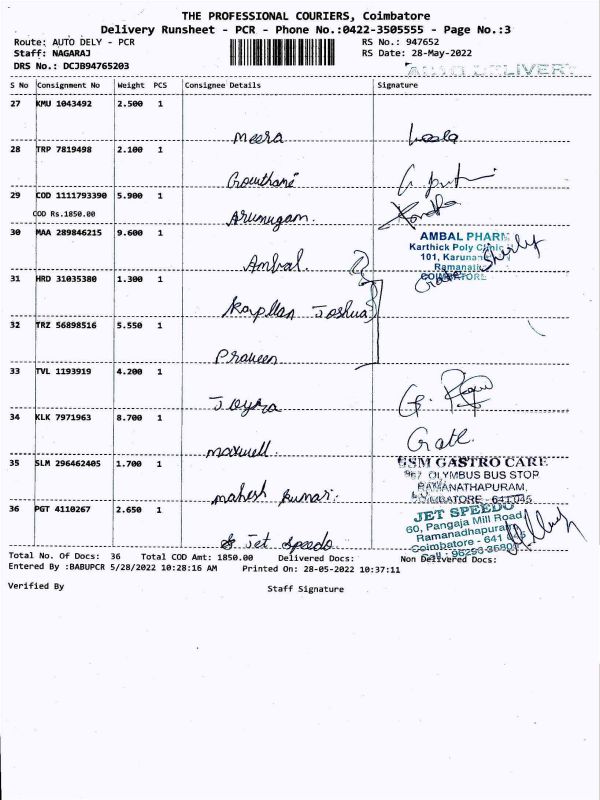 THE PROFESSIONAL COURIERS, Coimbatore
Delivery Runsheet - PCR - Phone No.:0422-3505555 - Page No.:3
Route: AUTO DELY - PCR RS No.: 947652
Staff: NAGARAJ RS Date: 28-May-2022
DRS No.: DCJB94765203
AUTO DELIVERY
S No Consignment No Weight PCS Consignee Details Signature
27 KMU 1043492 2.500 1
Meera
28 TRP 7819498 2.100 1
Gowthami
29 COD 1111793390 5.900 1
COD Rs.1850.00
Arumugam.
30 MAA 289846215 9.600 1
AMBAL PHARM
Karthick Poly Clinic
101, Karunan
Ramanath
COIMBATORE
Ambal.
31 HRD 31035380 1.300 1
Joshua
32 TRZ 56898516 5.550 1
Praveen
33 TVL 1193919 4.200 1
34 KLK 7971963 8.700 1
maxwell.
35 SLM 296462405 1.700 1
GSM GASTRO CARE
OLYMBUS BUS STOP
RAMANATHAPURAM,
COIMBATORE - 641 045
mahesh kumar.
36 PGT 4110267 2.650 1
JET SPEEDO
60, Pangaja Mill Road
Ramanadhapuram
Coimbatore - 641 045
Jet Speedo
Total No. Of Docs: 36 Total COD Amt: 1850.00 Delivered Docs: Non Delivered Docs:
Entered By :BABUPCR 5/28/2022 10:28:16 AM Printed On: 28-05-2022 10:37:11
Verified By Staff Signature